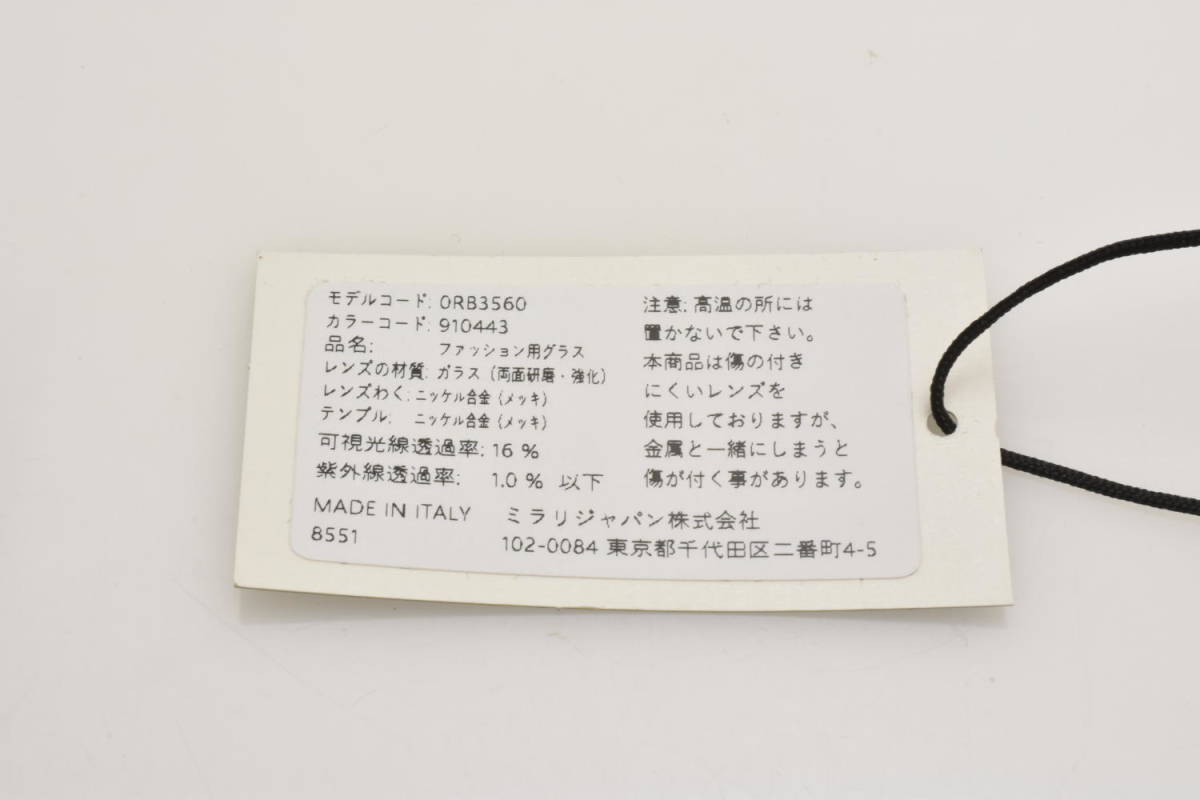 モデルコード: 0RB3560
カラーコード: 910443
品名: ファッション用グラス
レンズの材質: ガラス (両面研磨・強化)
レンズわく: ニッケル合金 (メッキ)
テンプル: ニッケル合金 (メッキ)
可視光線透過率: 16 %
紫外線透過率: 1.0 % 以下
MADE IN ITALY
8551
注意: 高温の所には
置かないで下さい。
本商品は傷の付き
にくいレンズを
使用しておりますが、
金属と一緒にしまうと
傷が付く事があります。
ミラリジャパン株式会社
102-0084 東京都千代田区二番町4-5